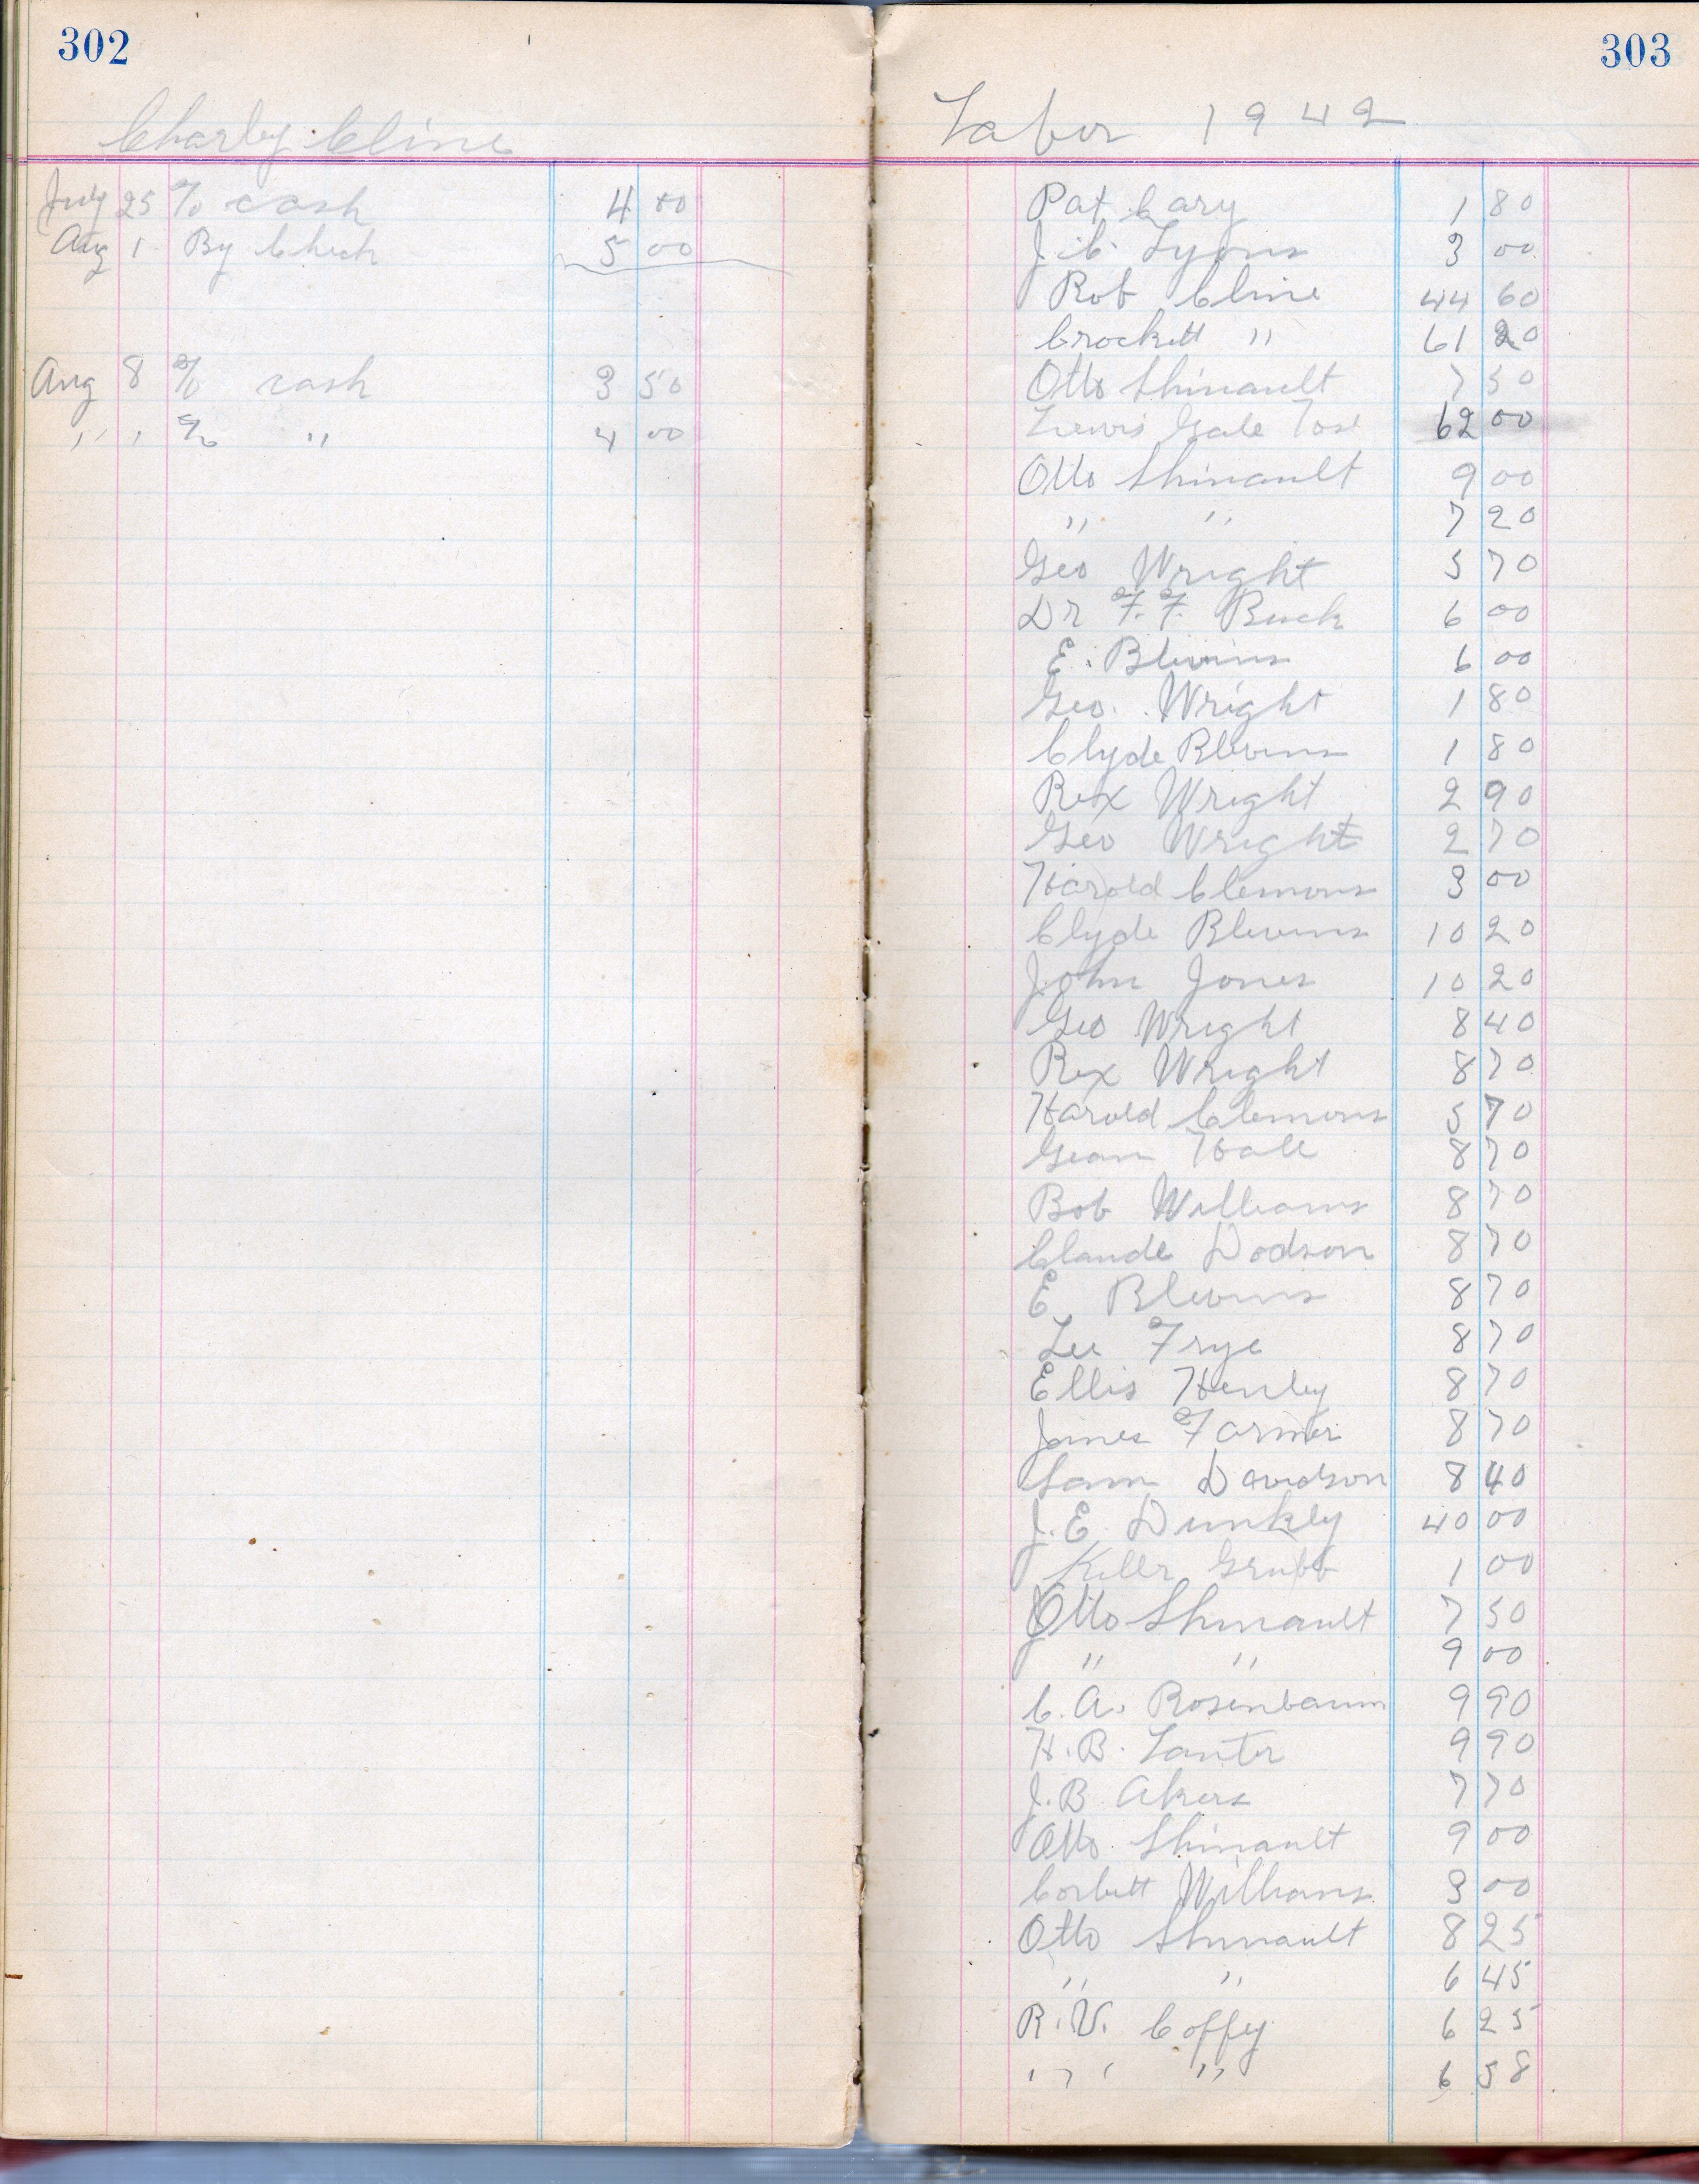 302
Charley Cline
July 25 % cash 4 00
Aug 1 By Check 5 00
Aug 8 % cash 3 50
" " % " 4 00
303
Labor 1942
Pat Cary 1 80
J.C. Lyons 3 00
Rob Cline 44 60
Crockett " 61 20
Otto Shinault 7 50
Lewis Gale 62 00
Otto Shinault 9 00
" " 7 20
Geo Wright 5 70
Dr F.F. Buck 6 00
E. Blevins 6 00
Geo. Wright 1 80
Clyde Blevins 1 80
Rex Wright 2 90
Geo Wright 2 70
Harold Clemons 3 00
Clyde Blevins 10 20
John Jones 10 20
Geo Wright 8 40
Rex Wright 8 70
Harold Clemons 5 70
Gean Hall 8 70
Bob Williams 8 70
Claude Dodson 8 70
E Blevins 8 70
Lee Frye 8 70
Ellis Henley 8 70
James Farmer 8 70
Sam Davidson 8 40
J.E. Dunkly 40 00
Keller Grubb 1 00
Otto Shinault 7 50
" " 9 00
C.A. Rosenbaum 9 90
H.B. Lanter 9 90
J.B. Akers 7 70
Otto Shinault 9 00
Corbett Williams 3 00
Otto Shinault 8 25
" " 6 45
R.V. Coffey 6 25
" " " 6 58